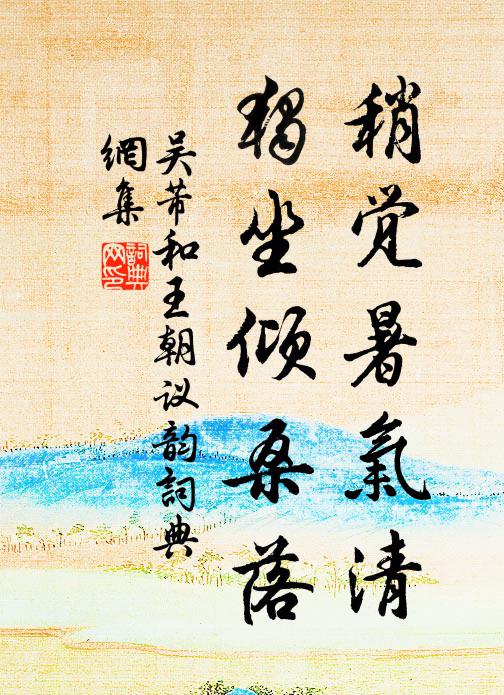 稍觉暑氣清
独坐倾桑落
吴芾和王朝议韵詞典
網集
詞典
网印